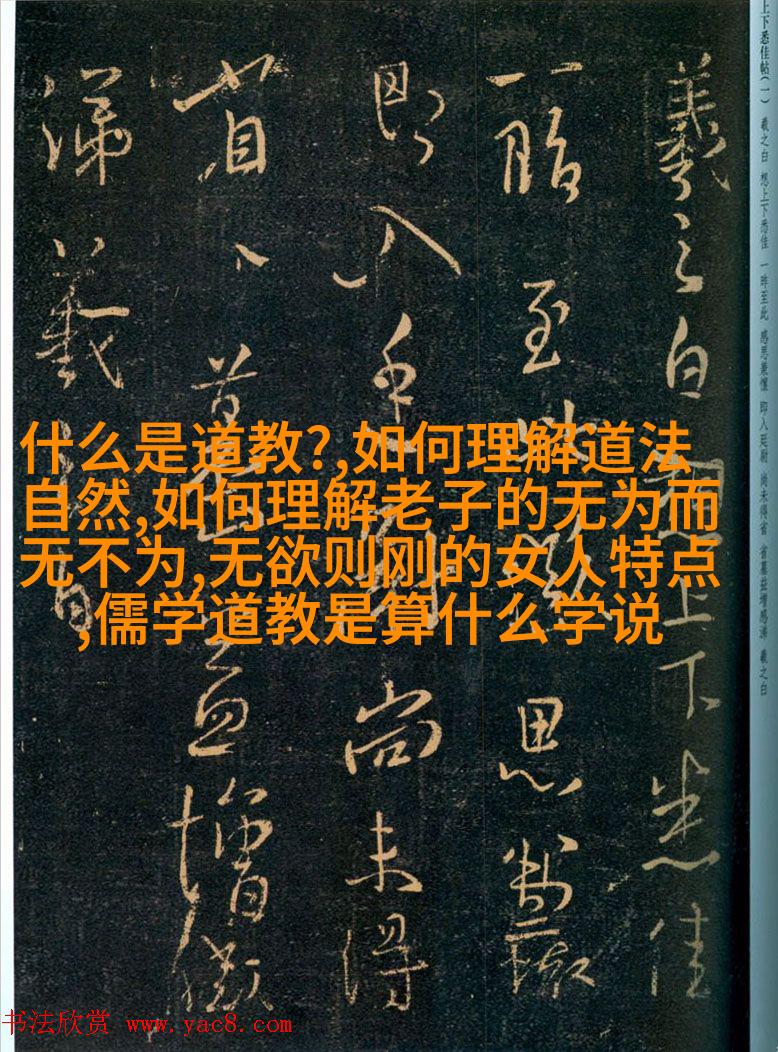 上下悉佳帖(一) 羲之白 想上下悉佳 一昨至此 感思 即入廷尉 尚未得省 省墓益增感涕 羲之白
羲之白想上下悉佳
一 至此感思
即入 尉尚未得
省省墓益增感
涕羲之白
什么是道教?,如何理解道法
自然,如何理解老子的无为而
无不为,无欲则刚的女人特点
,儒学道教是算什么学说
书法欣赏 www.yac8.com